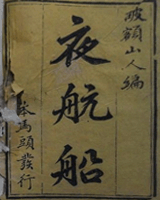 破額山人編
夜航船
本馬頭發行